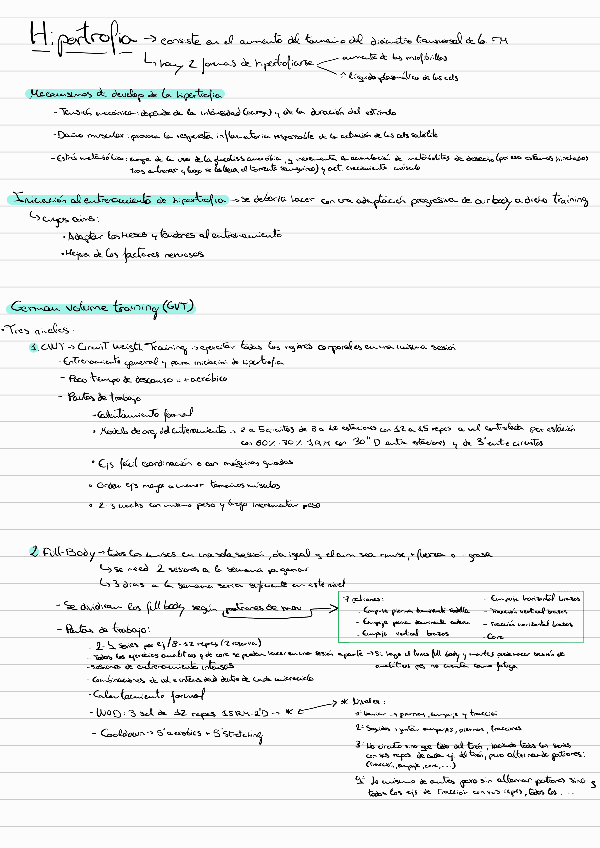 Hipertrofia → consiste en el aumento del tamaño del diámetro transversal de la FM
↳ hay 2 formas de hipertrofiarse
aumento de las miofibrillas
↑ líquido plasmático de las cels
Mecanismos d develop de la hipertrofia
- Tensión mecánica: depende de la intensidad (carga) y de la duración del estímulo
- Daño muscular: provoca la respuesta inflamatoria responsable de la activación de las cels satélite
- Estrés metabólico: surge de la vía de la glucólisis anaeróbica, y incrementa la acumulación de metabolitos de desecho (por eso estamos hinchados
tras entrenar y luego se el torrente sanguíneo) y act. crecimiento músculo
Iniciación al entrenamiento de hipertrofia → se debería hacer con una adaptación progresiva de our body a dicho training
↳ cuyos aims:
• Adaptar los huesos y tendones al entrenamiento
• Mejora de los factores nerviosos
German volume training (GVT)
• Tres niveles:
1. CWT → Circuit Weight Training → ejercitar todas las regiones corporales en una misma sesión
- Entrenamiento general y para iniciación de hipertrofia
- Poco tiempo de descanso → + aeróbico
- Pautas de trabajo
- Calentamiento formal
• Modelo de org. del entrenamiento → 2 a 5 circuitos de 8 a 12 estaciones con 12 a 15 reps a vel controlada por estación
con 60%-70% 1RM con 30" D entre estaciones y de 3' entre circuitos
• Ejs fácil coordinación o con máquinas guiadas
• Orden ejs mayor a menor tamaños músculos
• 2-3 weeks con mismo peso y luego incrementar peso
2. Full-Body → todos los muscs en una sola sesión, da igual q el aim sea muscu, + fuerza o - grasa
↳ se need 2 sesiones a la semana pa ganar
↳ 3 días a la semana sería suficiente en este nivel
- Se dividirán los full body según patrones de mov
7 patrones:
- Empuje piernas dominante rodilla
- Empuje pierna dominante cadera
- Empuje vertical brazos
- Empuje horizontal brazos
- Tracción vertical brazos
- Tracción horizontal brazos
- Core
- Pautas de trabajo:
- 2-5 series por ej / 8-12 reps (2 reserva)
- Todos los ejercicios analíticos y de core se pueden hacer en una sesión aparte → Si hago el lunes full body y martes puedo hacer sesión de
analíticos pq no cuenta como fatiga
- sesiones de entrenamiento intensas
- Combinaciones de vol e intensidad dentro de cada microciclo
- Calentamiento formal
- WOD: 3 set de 12 reps 15RM 2'D → *
- Cooldown → 5' aerobics + 5' stretching
* Niveles:
1: y piernas, empuje y tracción
2: Seguidos y juntos empujes, piernas, tracciones
3: No circuito sino que todo del tirón, haciendo todas las series
con sus reps de cada ej del tirón, pero alternando patrones
(tracción, empuje, core, ...)
4: Lo mismo de antes pero sin alternar patrones sino
todos los ejs de tracción con sus reps, todos los ...